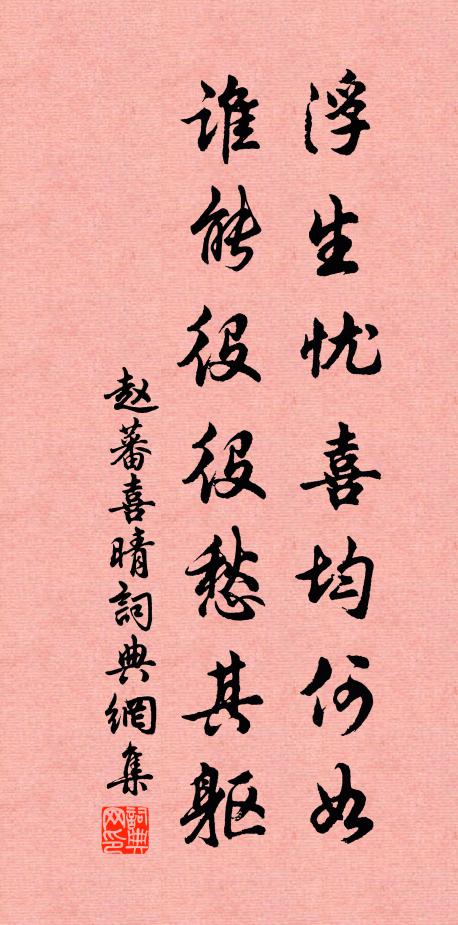 浮生忧喜均何如
谁能役役愁其躯
赵蕃喜晴词典網集
詞典网印